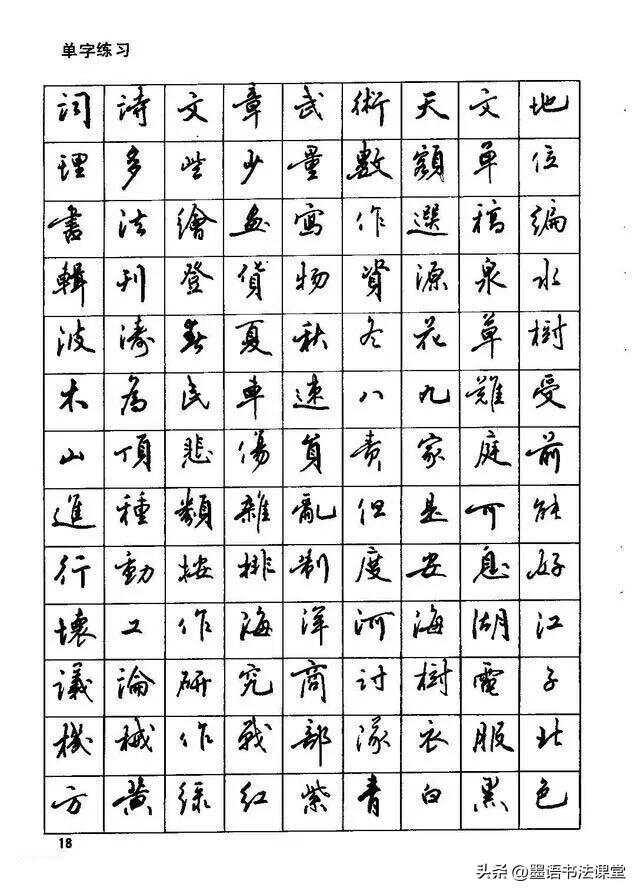 单字练习
詞詩文章武術天文地
理多些少量數額單位
書法繪画寫作選稿編
輯刊登貨物資源泉水
波濤春夏秋冬花草樹
木為民車速八九難受
山頂悲傷負責家庭前
進種類雜亂但是可能
行動按排制度安息好
壞工作海洋河海湖江
議論研究商討樹電子
機械作戰部隊衣服北
方黃綠紅紫青白黑色
18
头条@墨语书法课堂